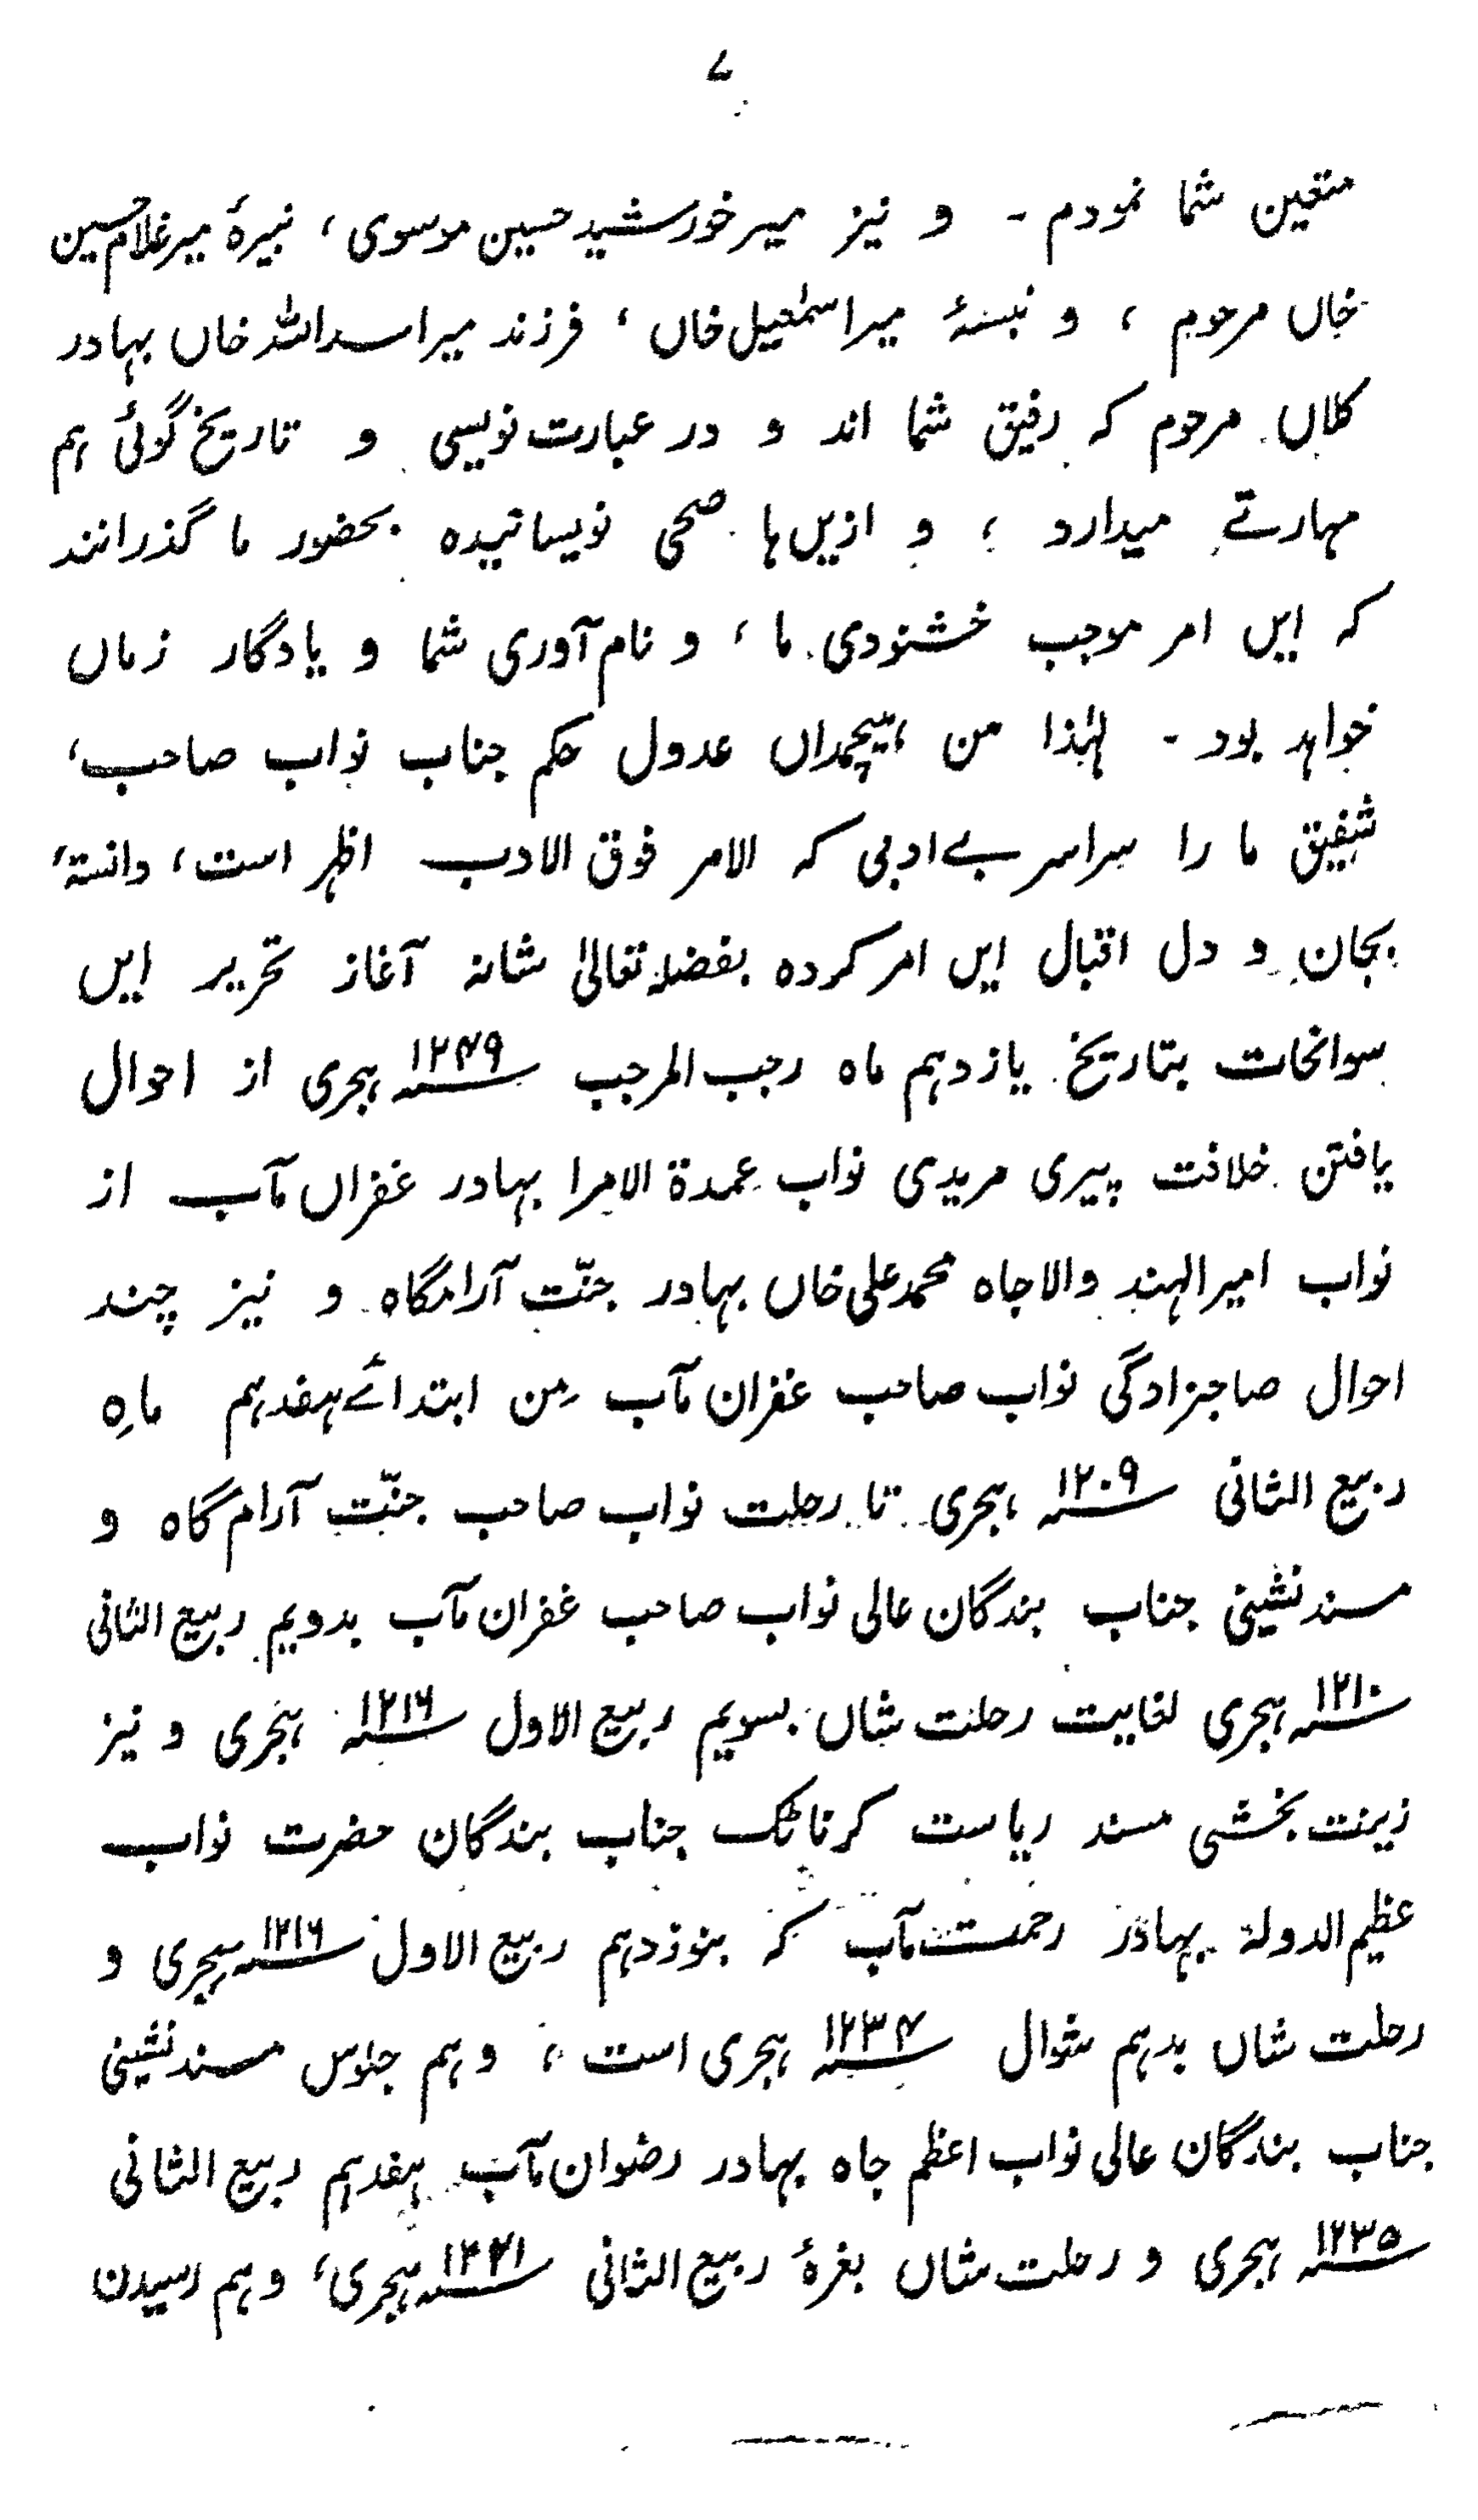 ۷
متعین شما نمودم ۔ و نیز میر خورشید حسین موسوی ، نبیرۂ میر غلام حسین
خاں مرحوم ، و نبسۂ میر اسمٰعیل خاں ، فرزند میر اسد اللہ خاں بہادر
کلاں مرحوم کہ رفیق شما اند و در عبارت نویسی و تاریخ گوئی ہم
مہارتے میدارد ، و ازیں ہا صحی نویسانیدہ بحضور ما گذرانند
کہ ایں امر موجب خشنودی ما ، و نام آوری شما و یادگار زماں
خواہد بود ۔ لہٰذا من ہیچمداں عدول حکم جناب نواب صاحب ،
شفیق ما را سراسر بے ادبی کہ الامر فوق الادب اظہر است ، دانستہ ،
بجان و دل اقبال ایں امر کردہ بفضلہ تعالیٰ شانہ آغاز تحریر ایں
سوانحات بتاریخ یازدہم ماہ رجب المرجب سنہ ۱۲۴۹ ہجری از احوال
یافتن خلافت پیری مریدی نواب عمدۃ الامرا بہادر غفراں مآب از
نواب امیر الہند والا جاہ محمد علی خاں بہادر جنّت آرامگاہ و نیز چند
احوال صاحبزادگی نواب صاحب غفران مآب مِن ابتدائے ہفدہم ماہِ
ربیع الثانی سنہ ۱۲۰۹ ہجری تا رحلت نواب صاحب جنّت آرام گاہ و
مسند نشینی جناب بندگان عالی نواب صاحب غفران مآب بدویم ربیع الثانی
سنہ ۱۲۱۰ ہجری لغایت رحلت شاں بسویم ربیع الاول سنہ ۱۲۱۶ ہجری و نیز
زینت بخشی مسند ریاست کرناٹک جناب بندگان حضرت نواب
عظیم الدولہ بہادر رحمت مآب کہ بنوزدہم ربیع الاول سنہ ۱۲۱۶ ہجری و
رحلت شاں بدہم شوال سنہ ۱۲۳۴ ہجری است ، و ہم جلوس مسند نشینی
جناب بندگان عالی نواب اعظم جاہ بہادر رضوان مآب ہفدہم ربیع الثانی
سنہ ۱۲۳۵ ہجری و رحلت شاں بغرۂ ربیع الثانی سنہ ۱۲۴۱ ہجری ، و ہم رسیدن